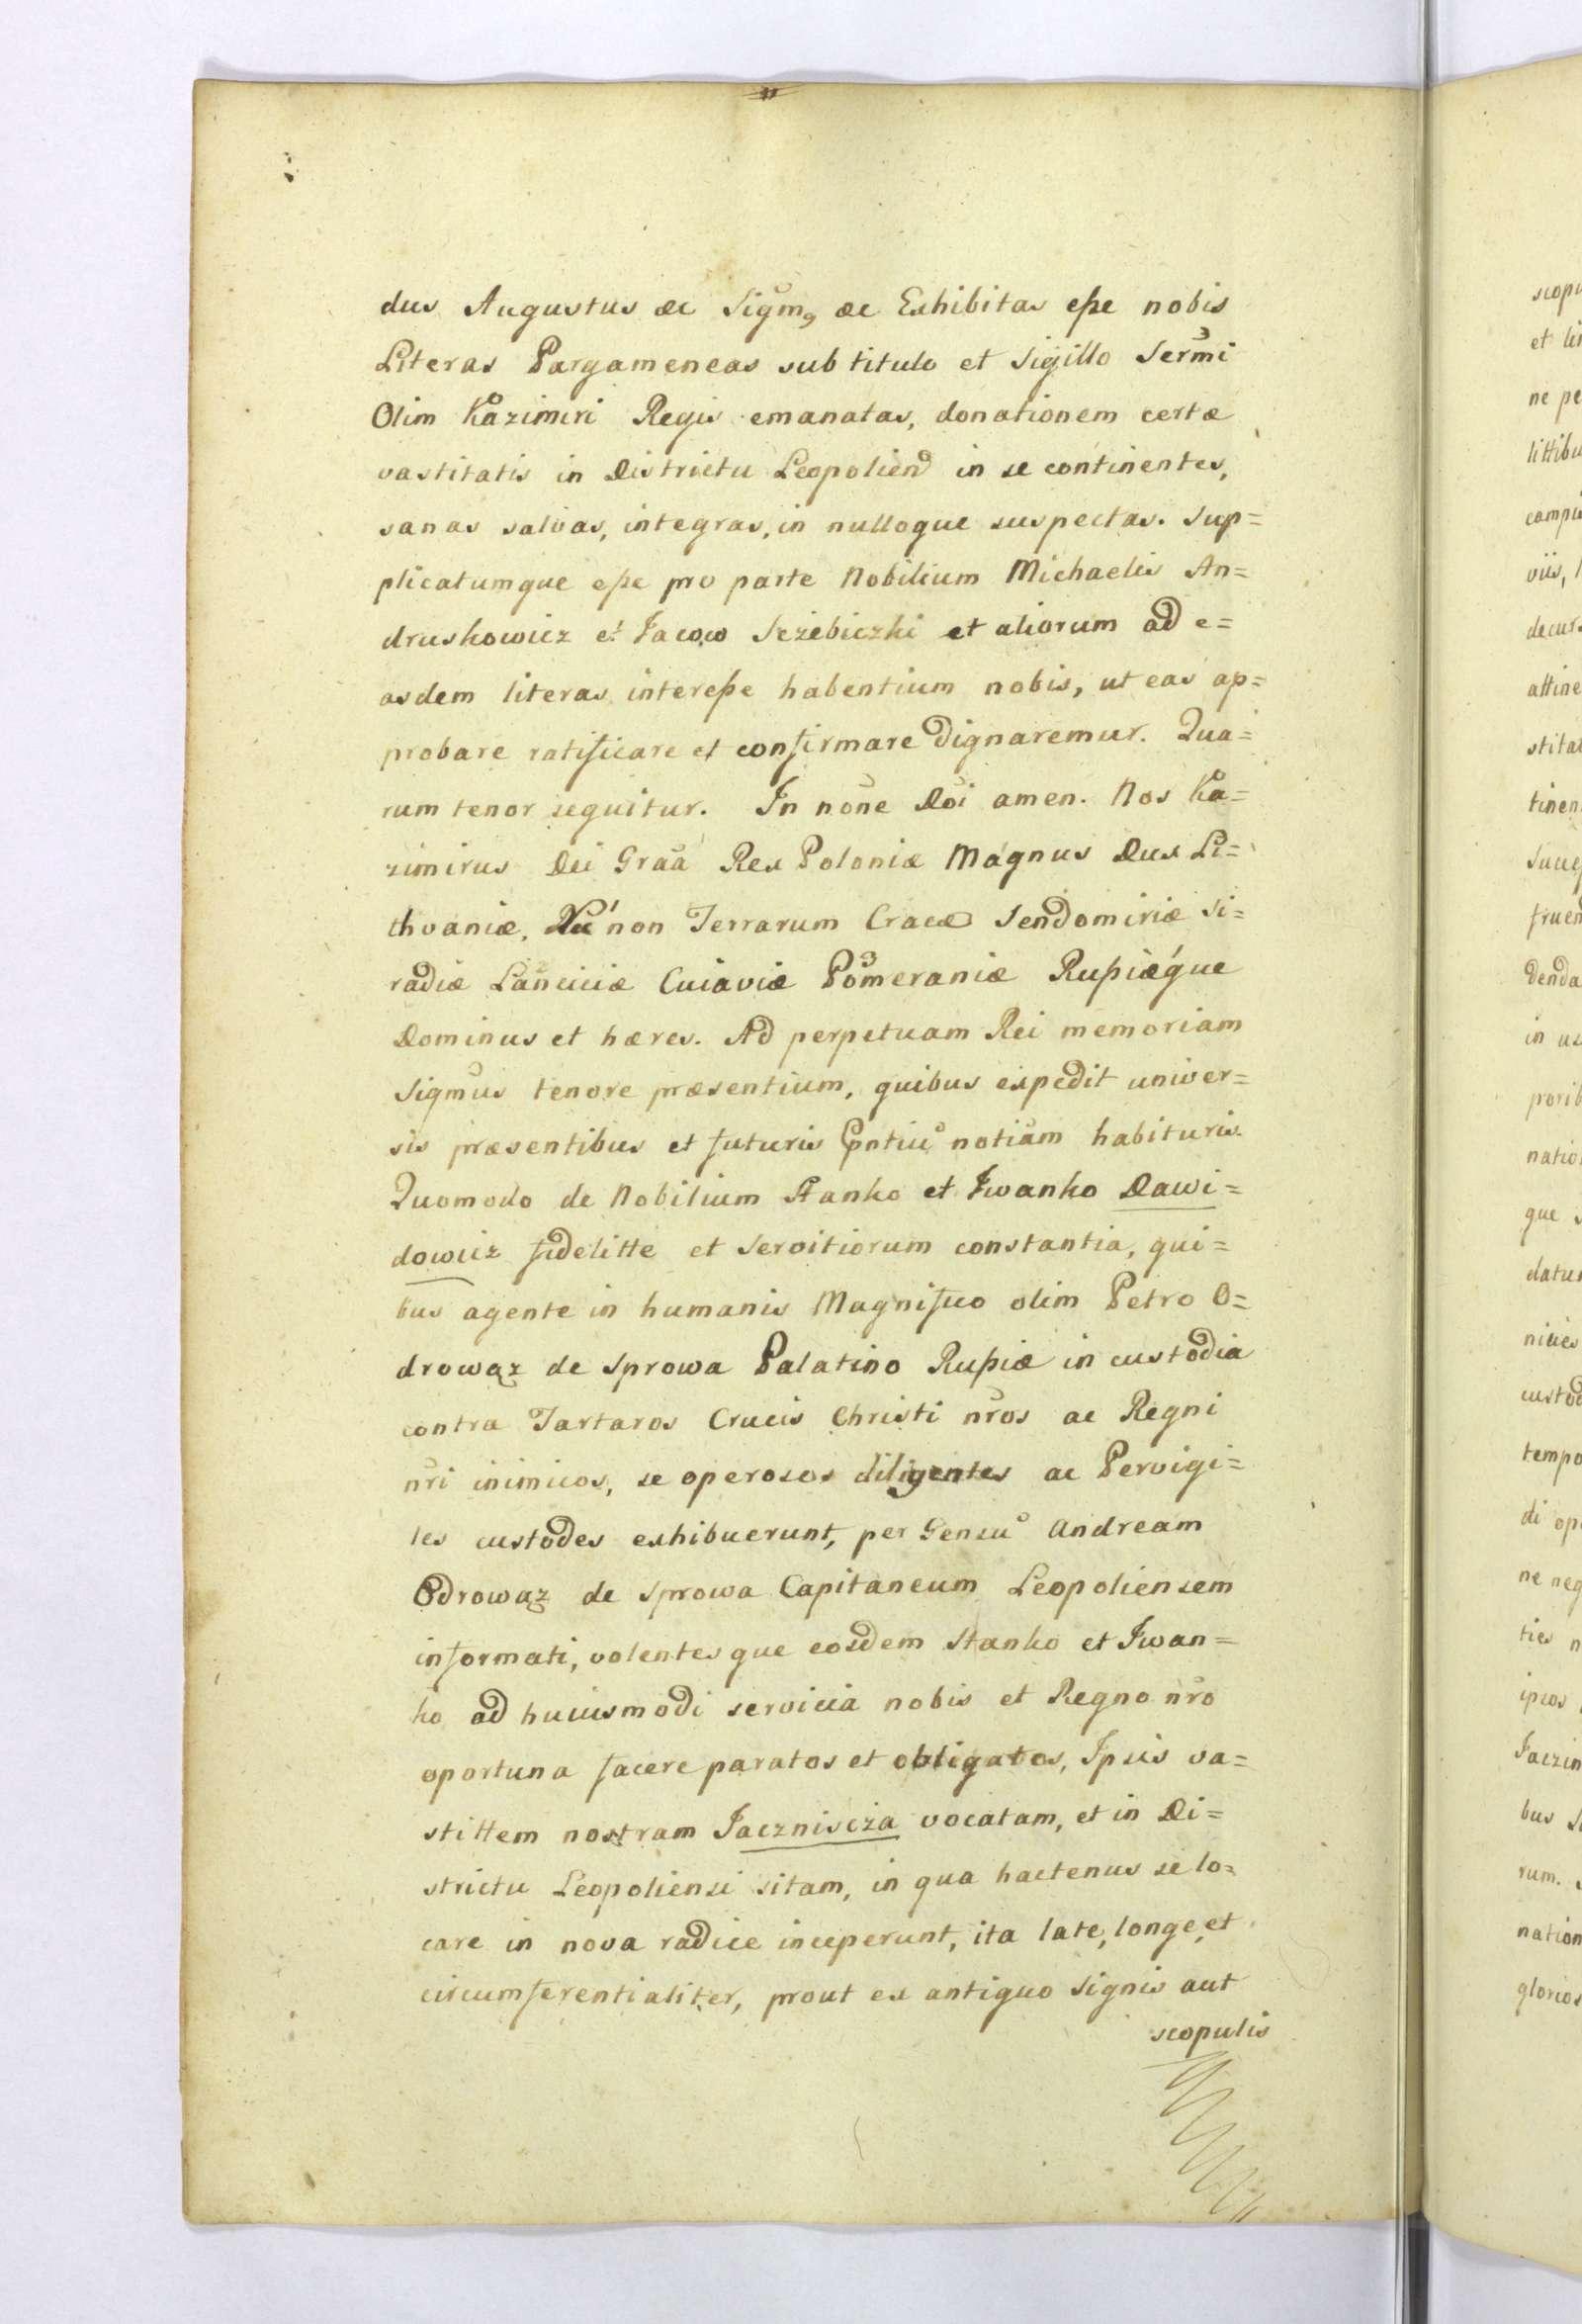 dus Augustus &c Sigm, &c Exhibitas eße nobis
Literas Pargameneas sub titulo et Sigillo Sermi
Olim Kazimiri Regis emanatas, donationem certæ
vastitatis in Districtu Leopolien in se continentes,
sanas salvas, integras, in nulloque suspectas. Sup=
plicatumque eße pro parte Nobilium Michaelis An=
druskowicz et Jacow Sczebiczki et aliorum ad e=
asdem literas intereße habentium nobis, ut eas ap=
probare ratificare et confirmare dignaremur. Qua=
rum tenor sequitur. In noñe Doi amen. Nos Ka=
zimirus Dei Graã Rex Poloniæ Magnus Dux Li=
thvaniæ, Nec non Terrarum Cracæ Sendomiriæ Si=
radiæ Lanciciæ Cuiaviæ Pomeraniæ Rußiæque
Dominus et hæres. Ad perpetuam Rei memoriam
Sigmus tenore præsentium, quibus expedit univer=
sis præsentibus et futuris pntiu notiam habituris.
Quomodo de Nobilium Stanko et Iwanko Dawi=
dowicz fidelitte et Servitiorum constantia, qui=
bus agente in humanis Magnifico olim Petro O=
drowąz de Sprowa Palatino Rußiæ in custodia
contra Tartaros Crucis Christi nros ac Regni
nri inimicos, se operosos diligentes ac Pervigi=
les custodes exhibuerunt, per Gensu Andream
Odrowąz de Sprowa Capitaneum Leopoliensem
informati, volentesque eosdem Stanko et Iwan=
ko ad huiusmodi servicia nobis et Regno nro
oportuna facere paratos et obligatos, Ipsis va=
stittem nostram Jaczniscza vocatam, et in Di=
strictu Leopoliensi sitam, in qua hactenus se lo=
care in nova radice inceperunt, ita late, longe, et
circumferentialiter, prout ex antiquo Signis aut
scopulis